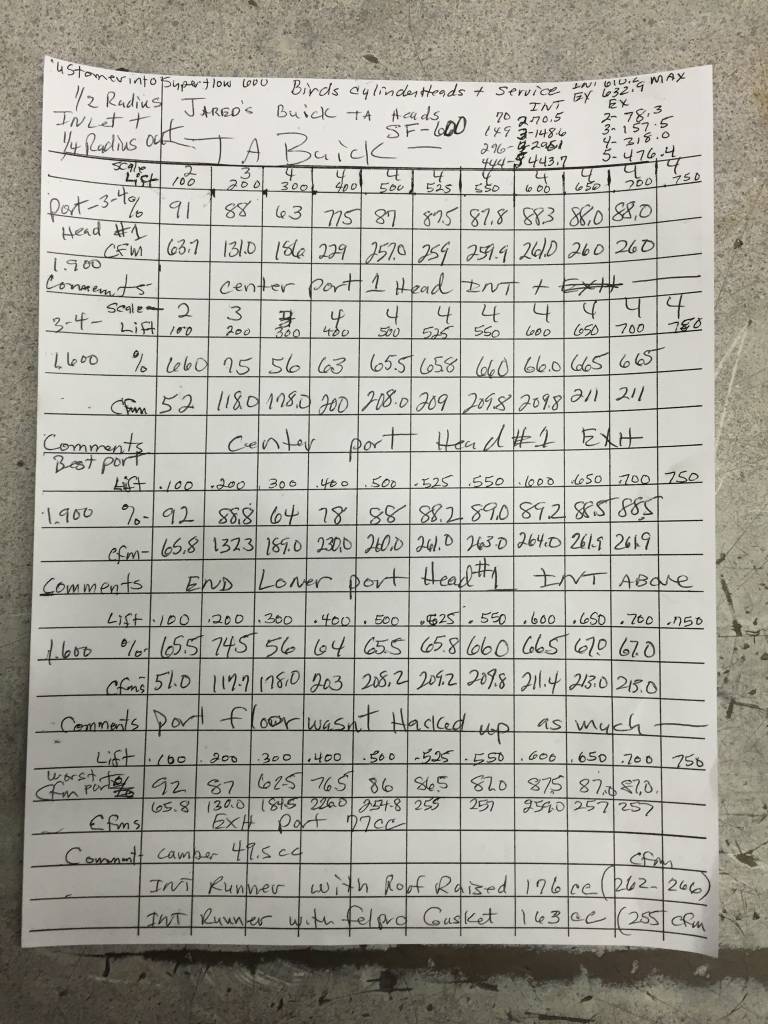 ustomer into Superflow 600 Birds Cylinder Heads + Service INT 610.2 MAX
1/2 Radius JARED'S Buick TA Heads INT EX 632.9
INLet + SF-600 70 2-70.5 EX 2-78.3
1/4 Radius out TA Buick — 149 3-148.6 3-157.5
296- 4-318.0
444- 5 443.7 5-476.4
Scale 2 3 4 4 4 4 4 4 4 4 4
Lift 100 200 300 400 500 525 550 600 650 700 .750
Port-3-4 % 91 88 63 775 87 87.5 87.8 883 88.0 88.0
Head #1
CFM 63.7 131.0 186 229 257.0 259 259.9 261.0 260 260
1.900
Comments center port 1 Head INT + EXH
Scale 2 3 4 4 4 4 4 4 4 4
3-4- Lift 100 200 300 400 500 525 550 600 650 700 750
1.600 % 660 75 56 63 65.5 658 660 66.0 665 665
Cfm 52 118.0 178.0 200 208.0 209 209.8 209.8 211 211
Comments Center port Head #1 EXH
Best port
Lift .100 .200 .300 .400 .500 .525 .550 .600 .650 .700 750
1.900 %- 92 88.8 64 78 88 88.2 89.0 89.2 88.5 885
cfm- 65.8 1323 189.0 230.0 260.0 261.0 263.0 264.0 261.9 261.9
Comments END Loner port Head #1 INT ABove
Lift .100 .200 .300 .400 .500 .525 .550 .600 .650 .700 .750
1.600 % 65.5 74.5 56 64 65.5 65.8 660 66.5 67.0 67.0
Cfms 51.0 117.7 178.0 203 208.2 209.2 209.8 211.4 213.0 213.0
Comments Port floor wasnt Hacked up as much —
Lift .100 .200 .300 .400 .500 .525 .550 .600 .650 .700 750
Worst
Cfm port % 92 87 62.5 76.5 86 86.5 87.0 87.5 87.0 87.0
65.8 130.0 184.5 226.0 254.8 255 257 259.0 257 257
Cfms EXH Port 77cc
Comment camber 49.5 cc cfm
INT Runner with Roof Raised 176 cc (262-266)
INT Runner with felpro Gasket 163 cc (255 cfm